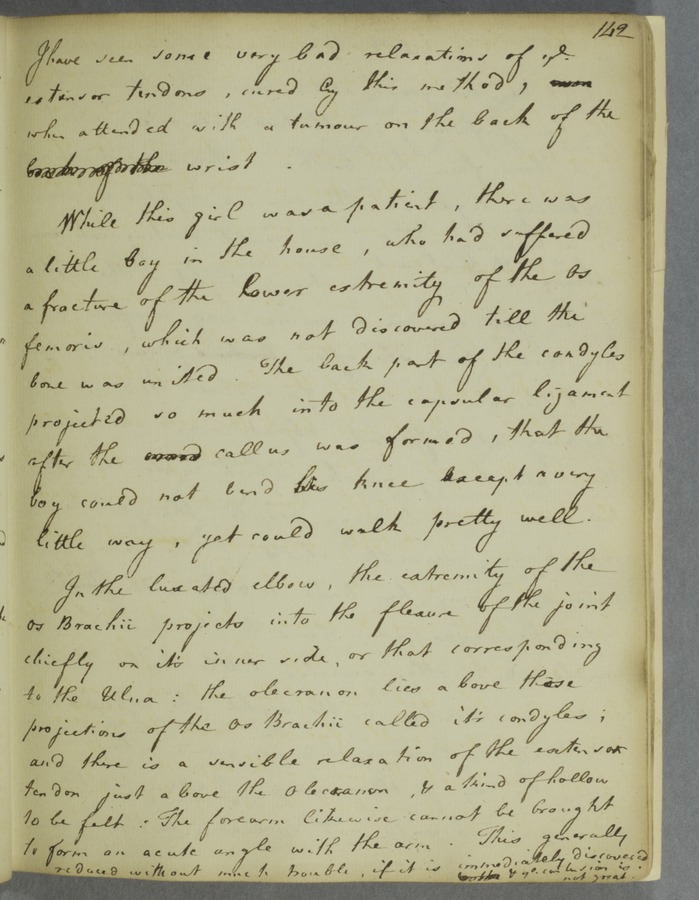 142
I have seen some very bad relaxations of ye.
extensor tendons, cured by this method,
when attended with a tumour on the back of the
wrist.
While this girl was a patient, there was
a little boy in the house, who had suffered
a fracture of the lower extremity of the os
femoris, which was not discovered till the
bone was united. The back part of the condyles
projected so much into the capsular ligament
after the callus was formed, that the
boy could not bend his knee except a very
little way, yet could walk pretty well.
In the luxated elbow, the extremity of the
os Brachii projects into the flexure of the joint
chiefly on it's inner side, or that corresponding
to the Ulna: the olecranon lies above those
projections of the os Brachii called it's condyles;
and there is a sensible relaxation of the extensor
tendon just above the olecranon, & a kind of hollow
to be felt: The forearm likewise cannot be brought
to form an acute angle with the arm. This generally
reduced without much trouble, if it is immediately discovered
& ye. contusion is
not great.